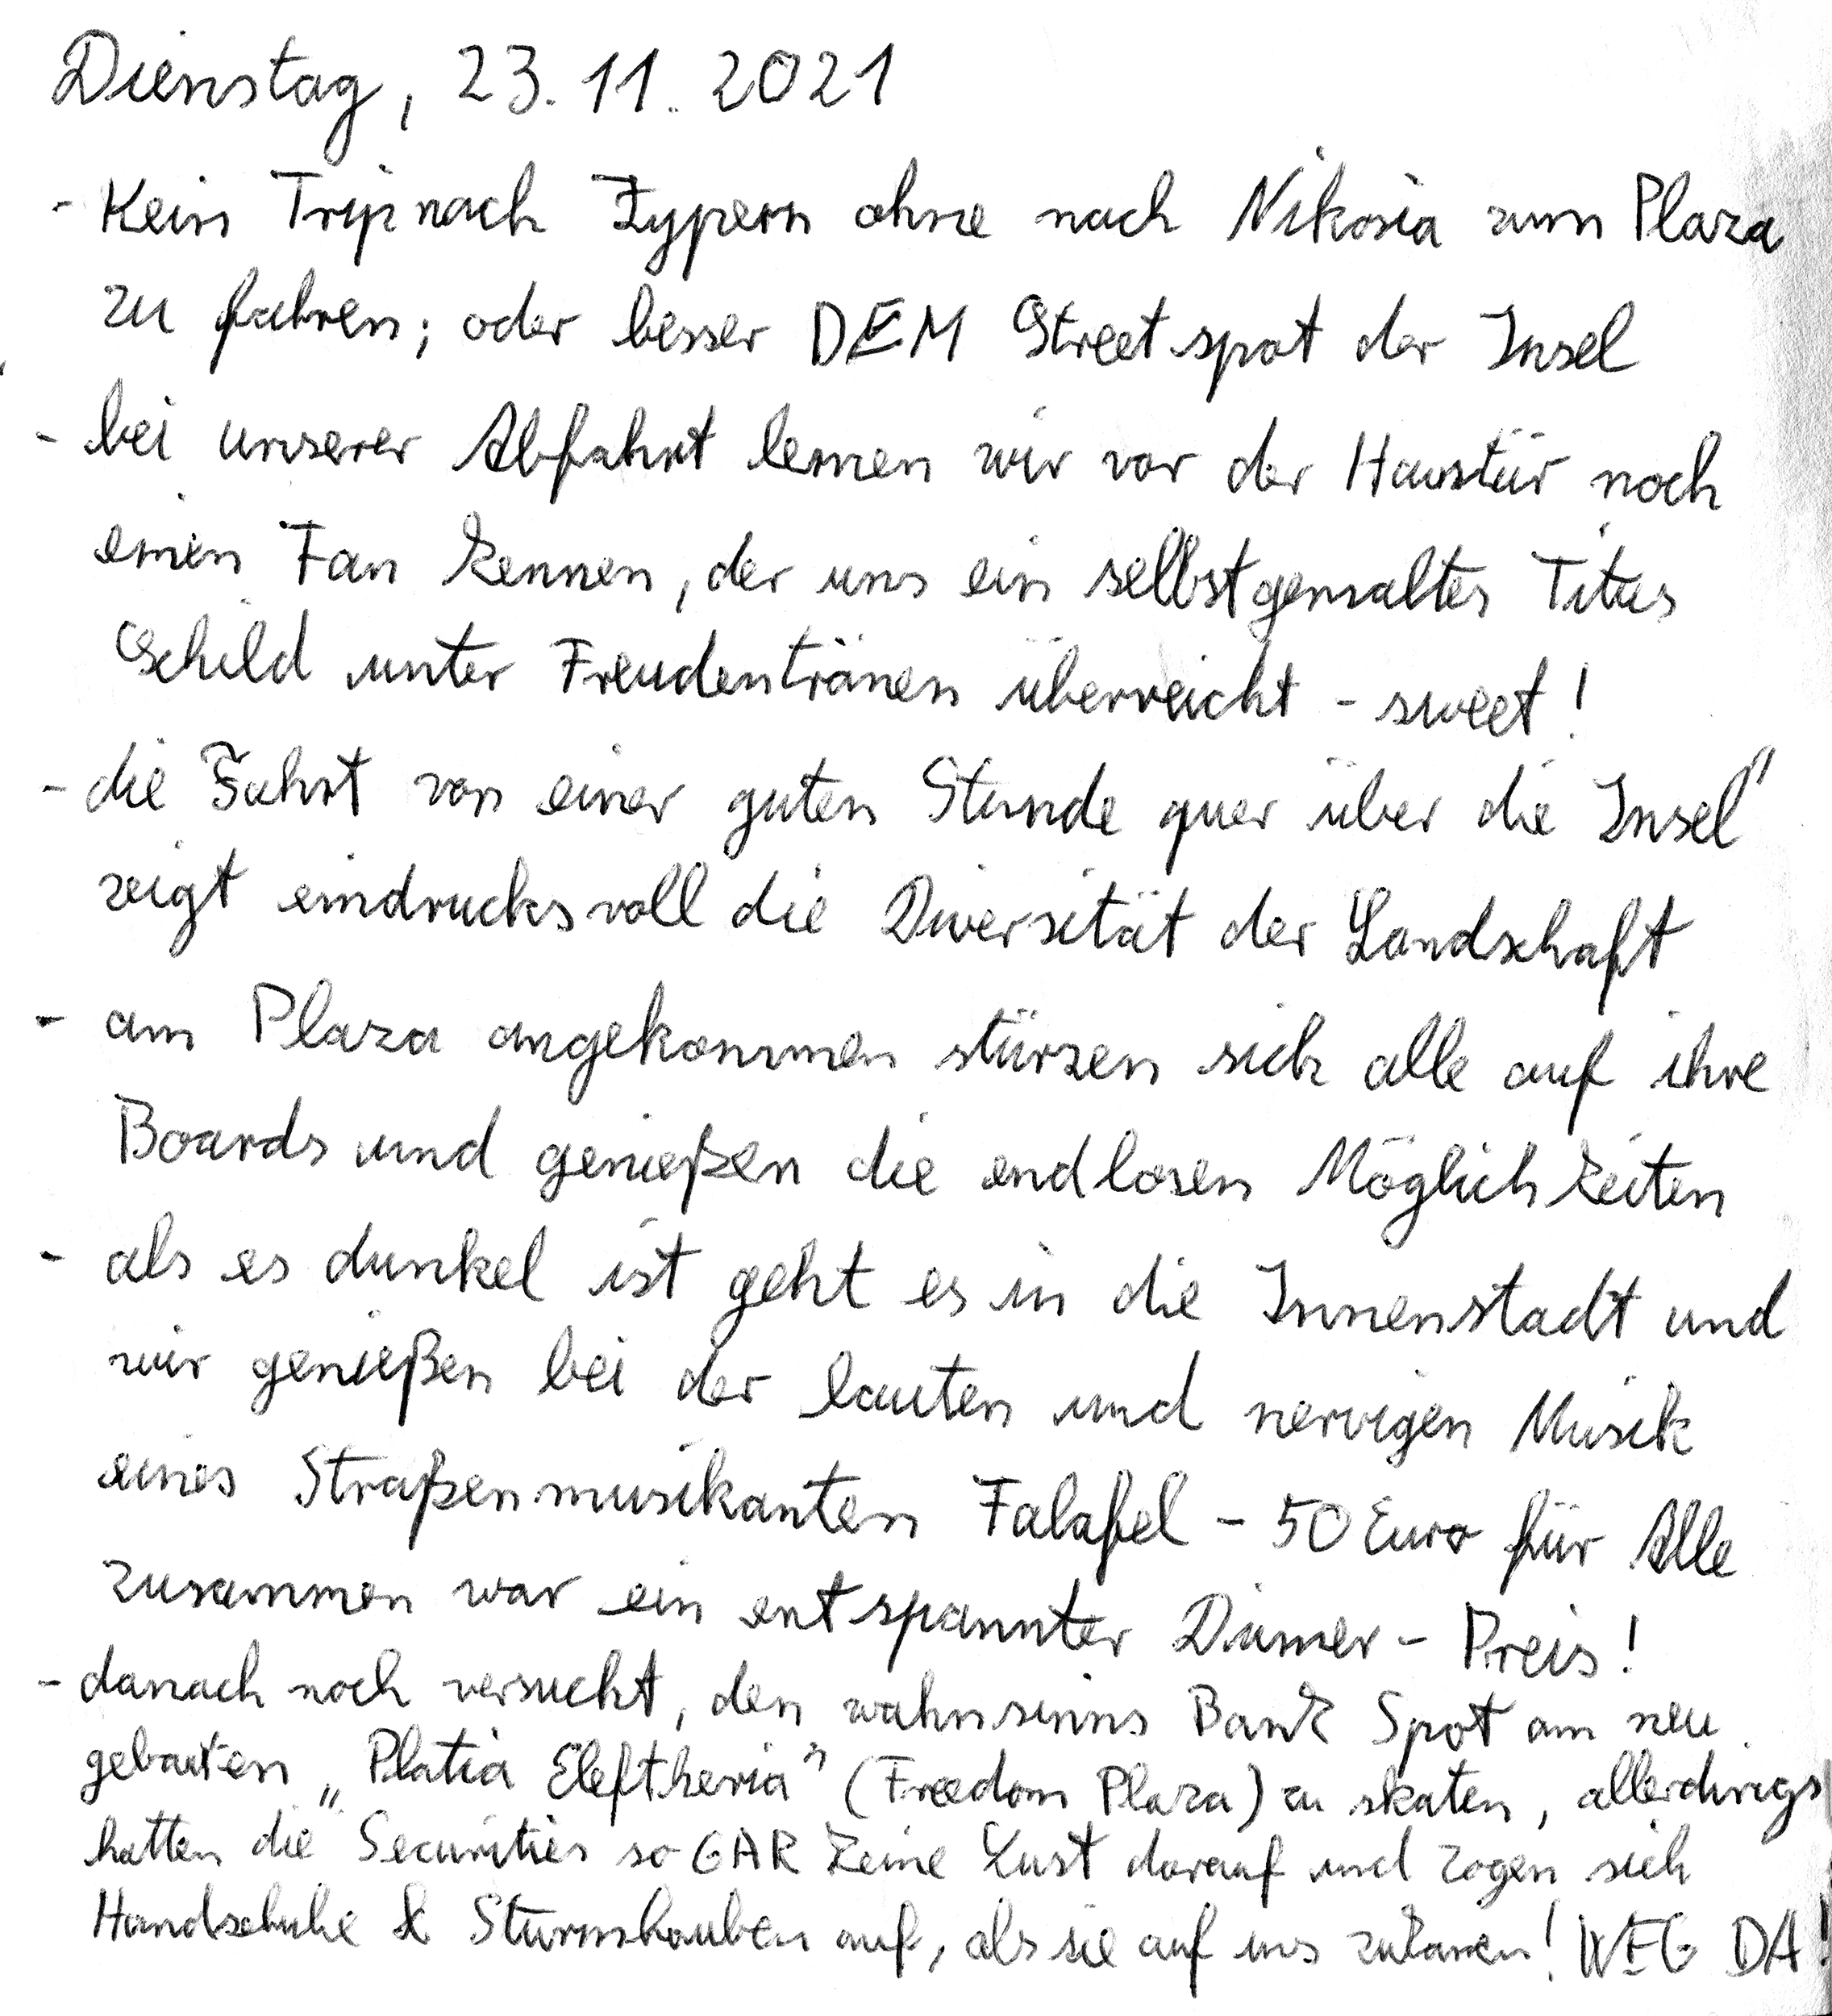 Dienstag, 23.11.2021
- Kein Trip nach Zypern ohne nach Nikosia zum Plaza
zu fahren; oder besser DEM Streetspot der Insel
- bei unserer Abfahrt lernen wir vor der Haustür noch
einen Fan kennen, der uns ein selbstgemaltes Titus
Schild unter Freudentränen überreicht - sweet!
- die Fahrt von einer guten Stunde quer über die Insel"
zeigt eindrucksvoll die Diversität der Landschaft
- am Plaza angekommen stürzen sich alle auf ihre
Boards und genießen die endlosen Möglichkeiten
- als es dunkel ist geht es in die Innenstadt und
wir genießen bei der lauten und nervigen Musik
eines Straßenmusikanten Falafel - 50 Euro für Alle
zusammen war ein entspannter Dinner-Preis!
- danach noch versucht, den wahnsinns Bank Spot am neu
gebauten „Platia Eleftheria" (Freedom Plaza) zu skaten, allerdings
hatten die "Securities so GAR keine Lust darauf und zogen sich
Handschuhe & Sturmhauben auf, als sie auf uns zukamen! WEG DA!